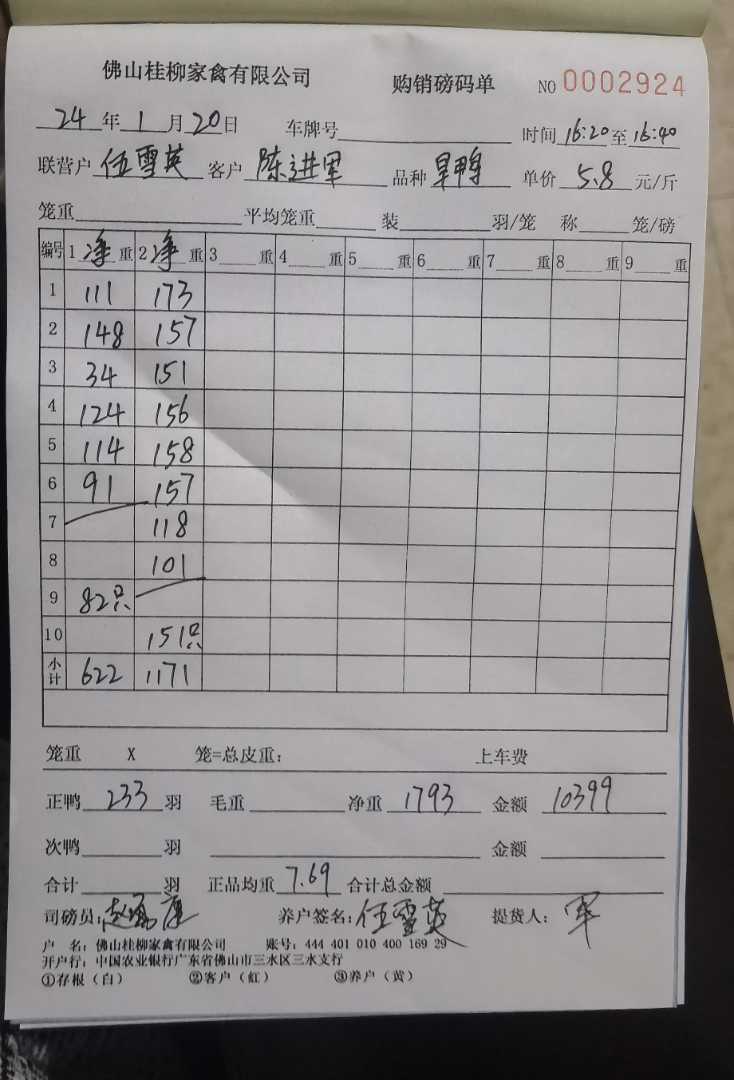 佛山桂柳家禽有限公司 购销磅码单 NO 0002924
24年1月20日 车牌号 时间16:20至16:40
联营户 伍雪英 客户 陈进军 品种 旱鸭 单价 5.8 元/斤
笼重 平均笼重 装 羽/笼 称 笼/磅
编号 1净重 2净重 3 重 4 重 5 重 6 重 7 重 8 重 9 重
1 111 173
2 148 157
3 34 151
4 124 156
5 114 158
6 91 157
7 118
8 101
9 82只
10 151只
小计 622 1171
笼重 X 笼=总皮重: 上车费
正鸭 233 羽 毛重 净重 1793 金额 10399
次鸭 羽 金额
合计 羽 正品均重 7.69 合计总金额
司磅员: 养户签名: 伍雪英 提货人: 军
户 名: 佛山桂柳家禽有限公司 账号: 444 401 010 400 169 29
开户行: 中国农业银行广东省佛山市三水区三水支行
①存根(白) ②客户(红) ③养户(黄)